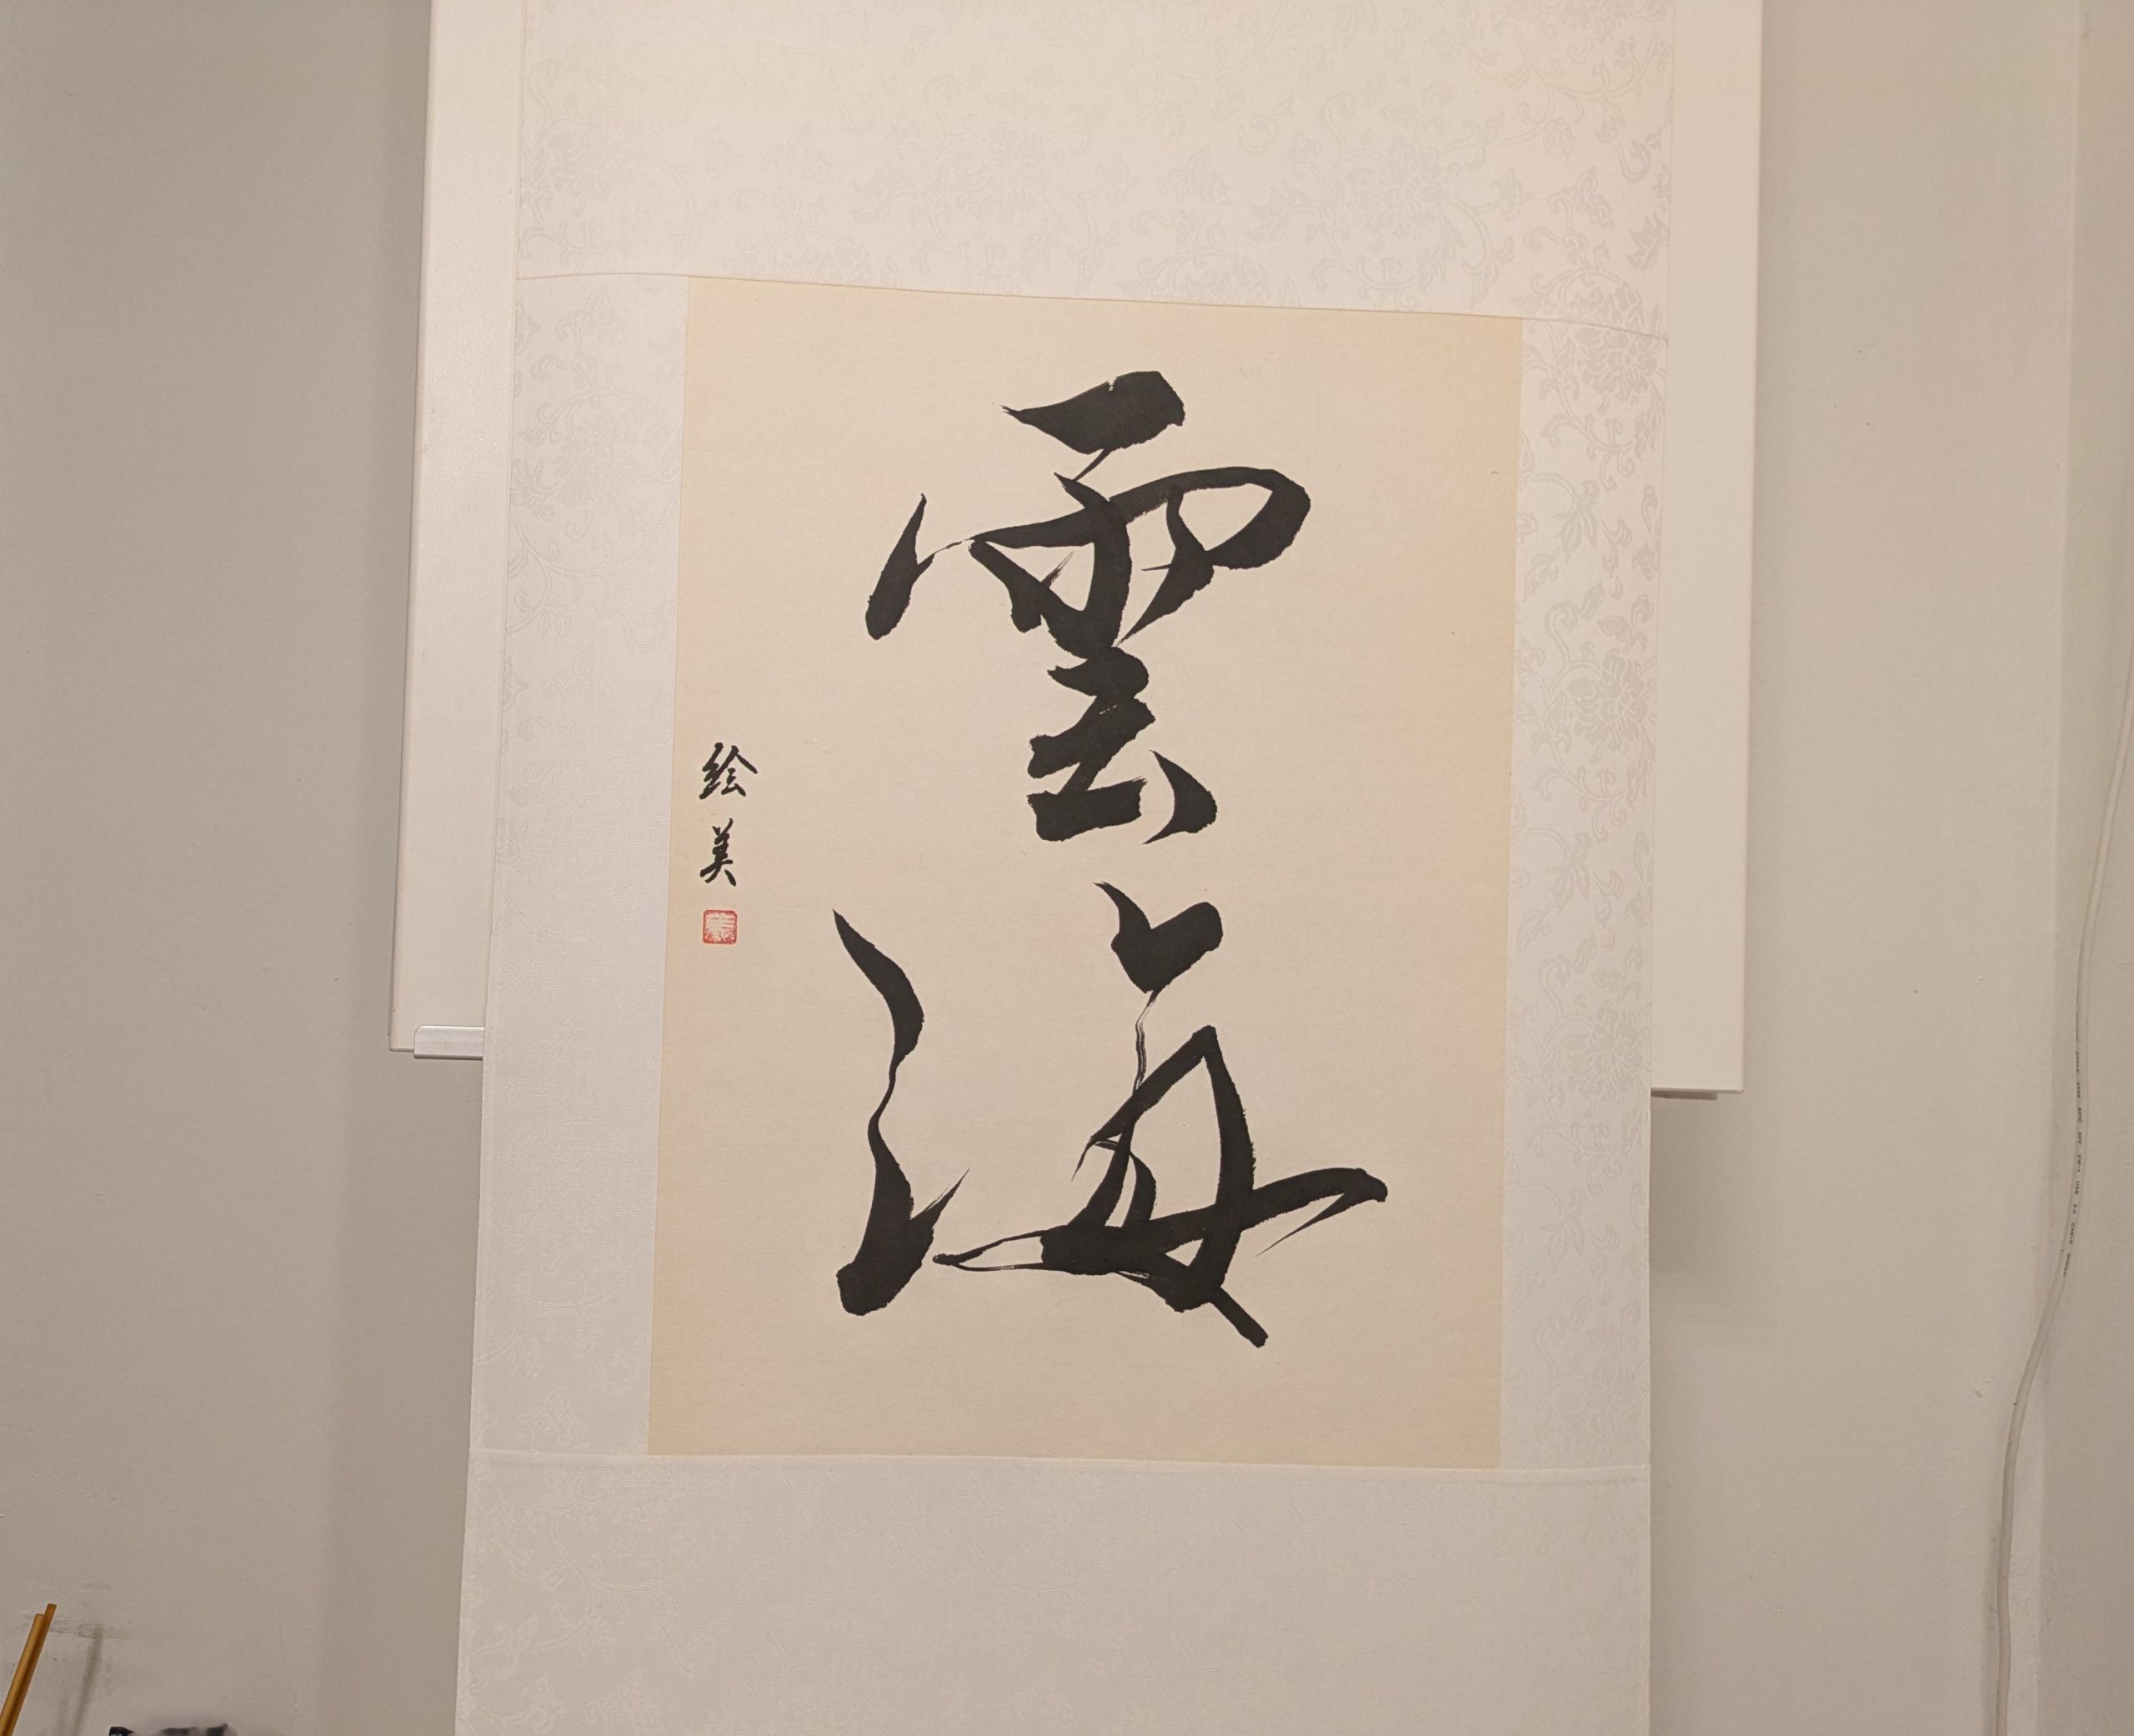 雲海
絵美